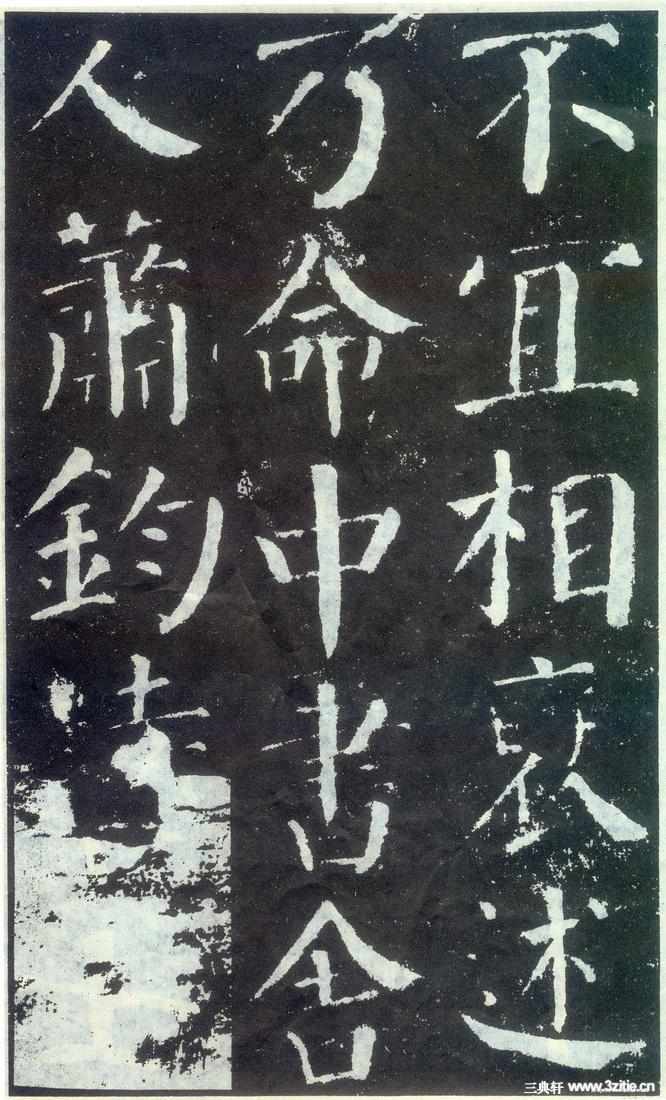 不宜相褒述
乃命中書舍
人蕭鈞
三典轩 www.3zitie.cn